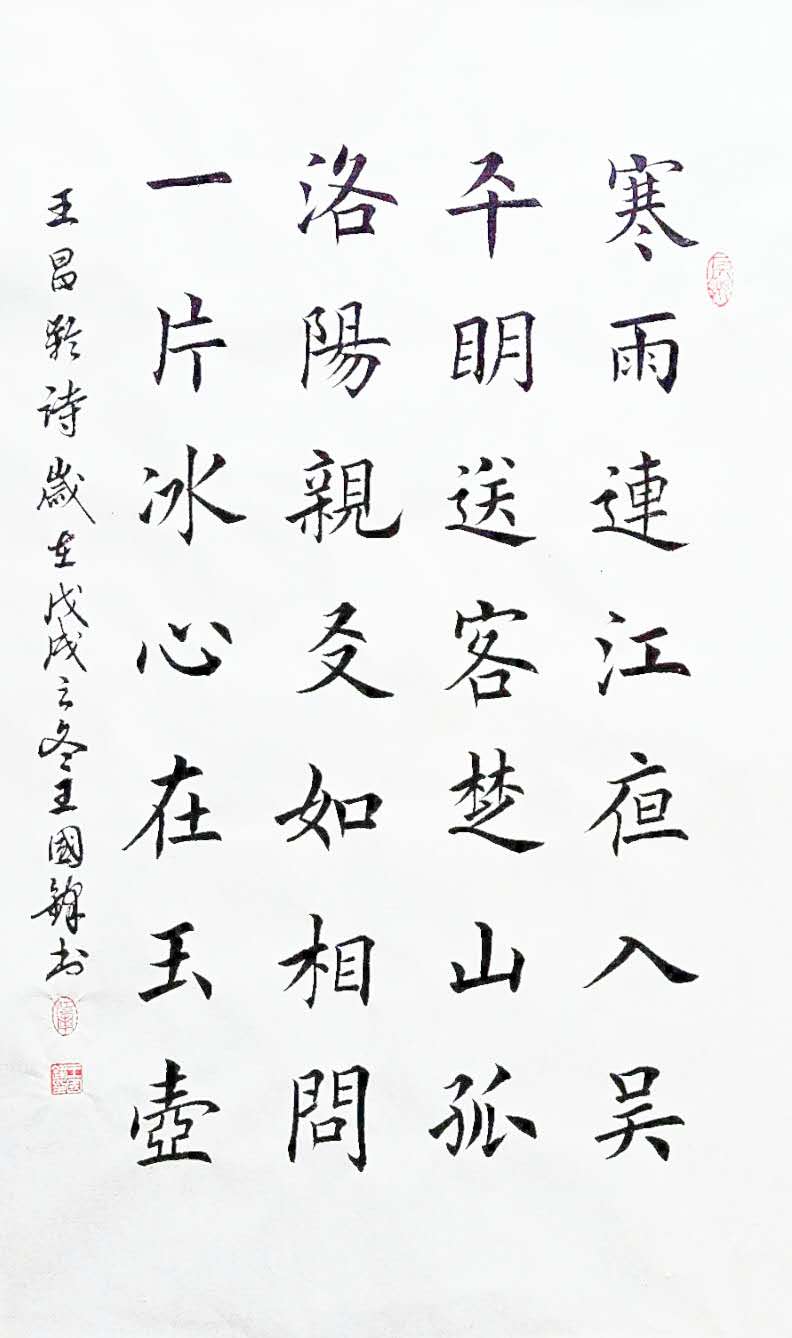 寒雨連江夜入吴
平明送客楚山孤
洛陽親友如相問
一片冰心在玉壺
王昌齡詩歲在戊戌之冬王國鋒書